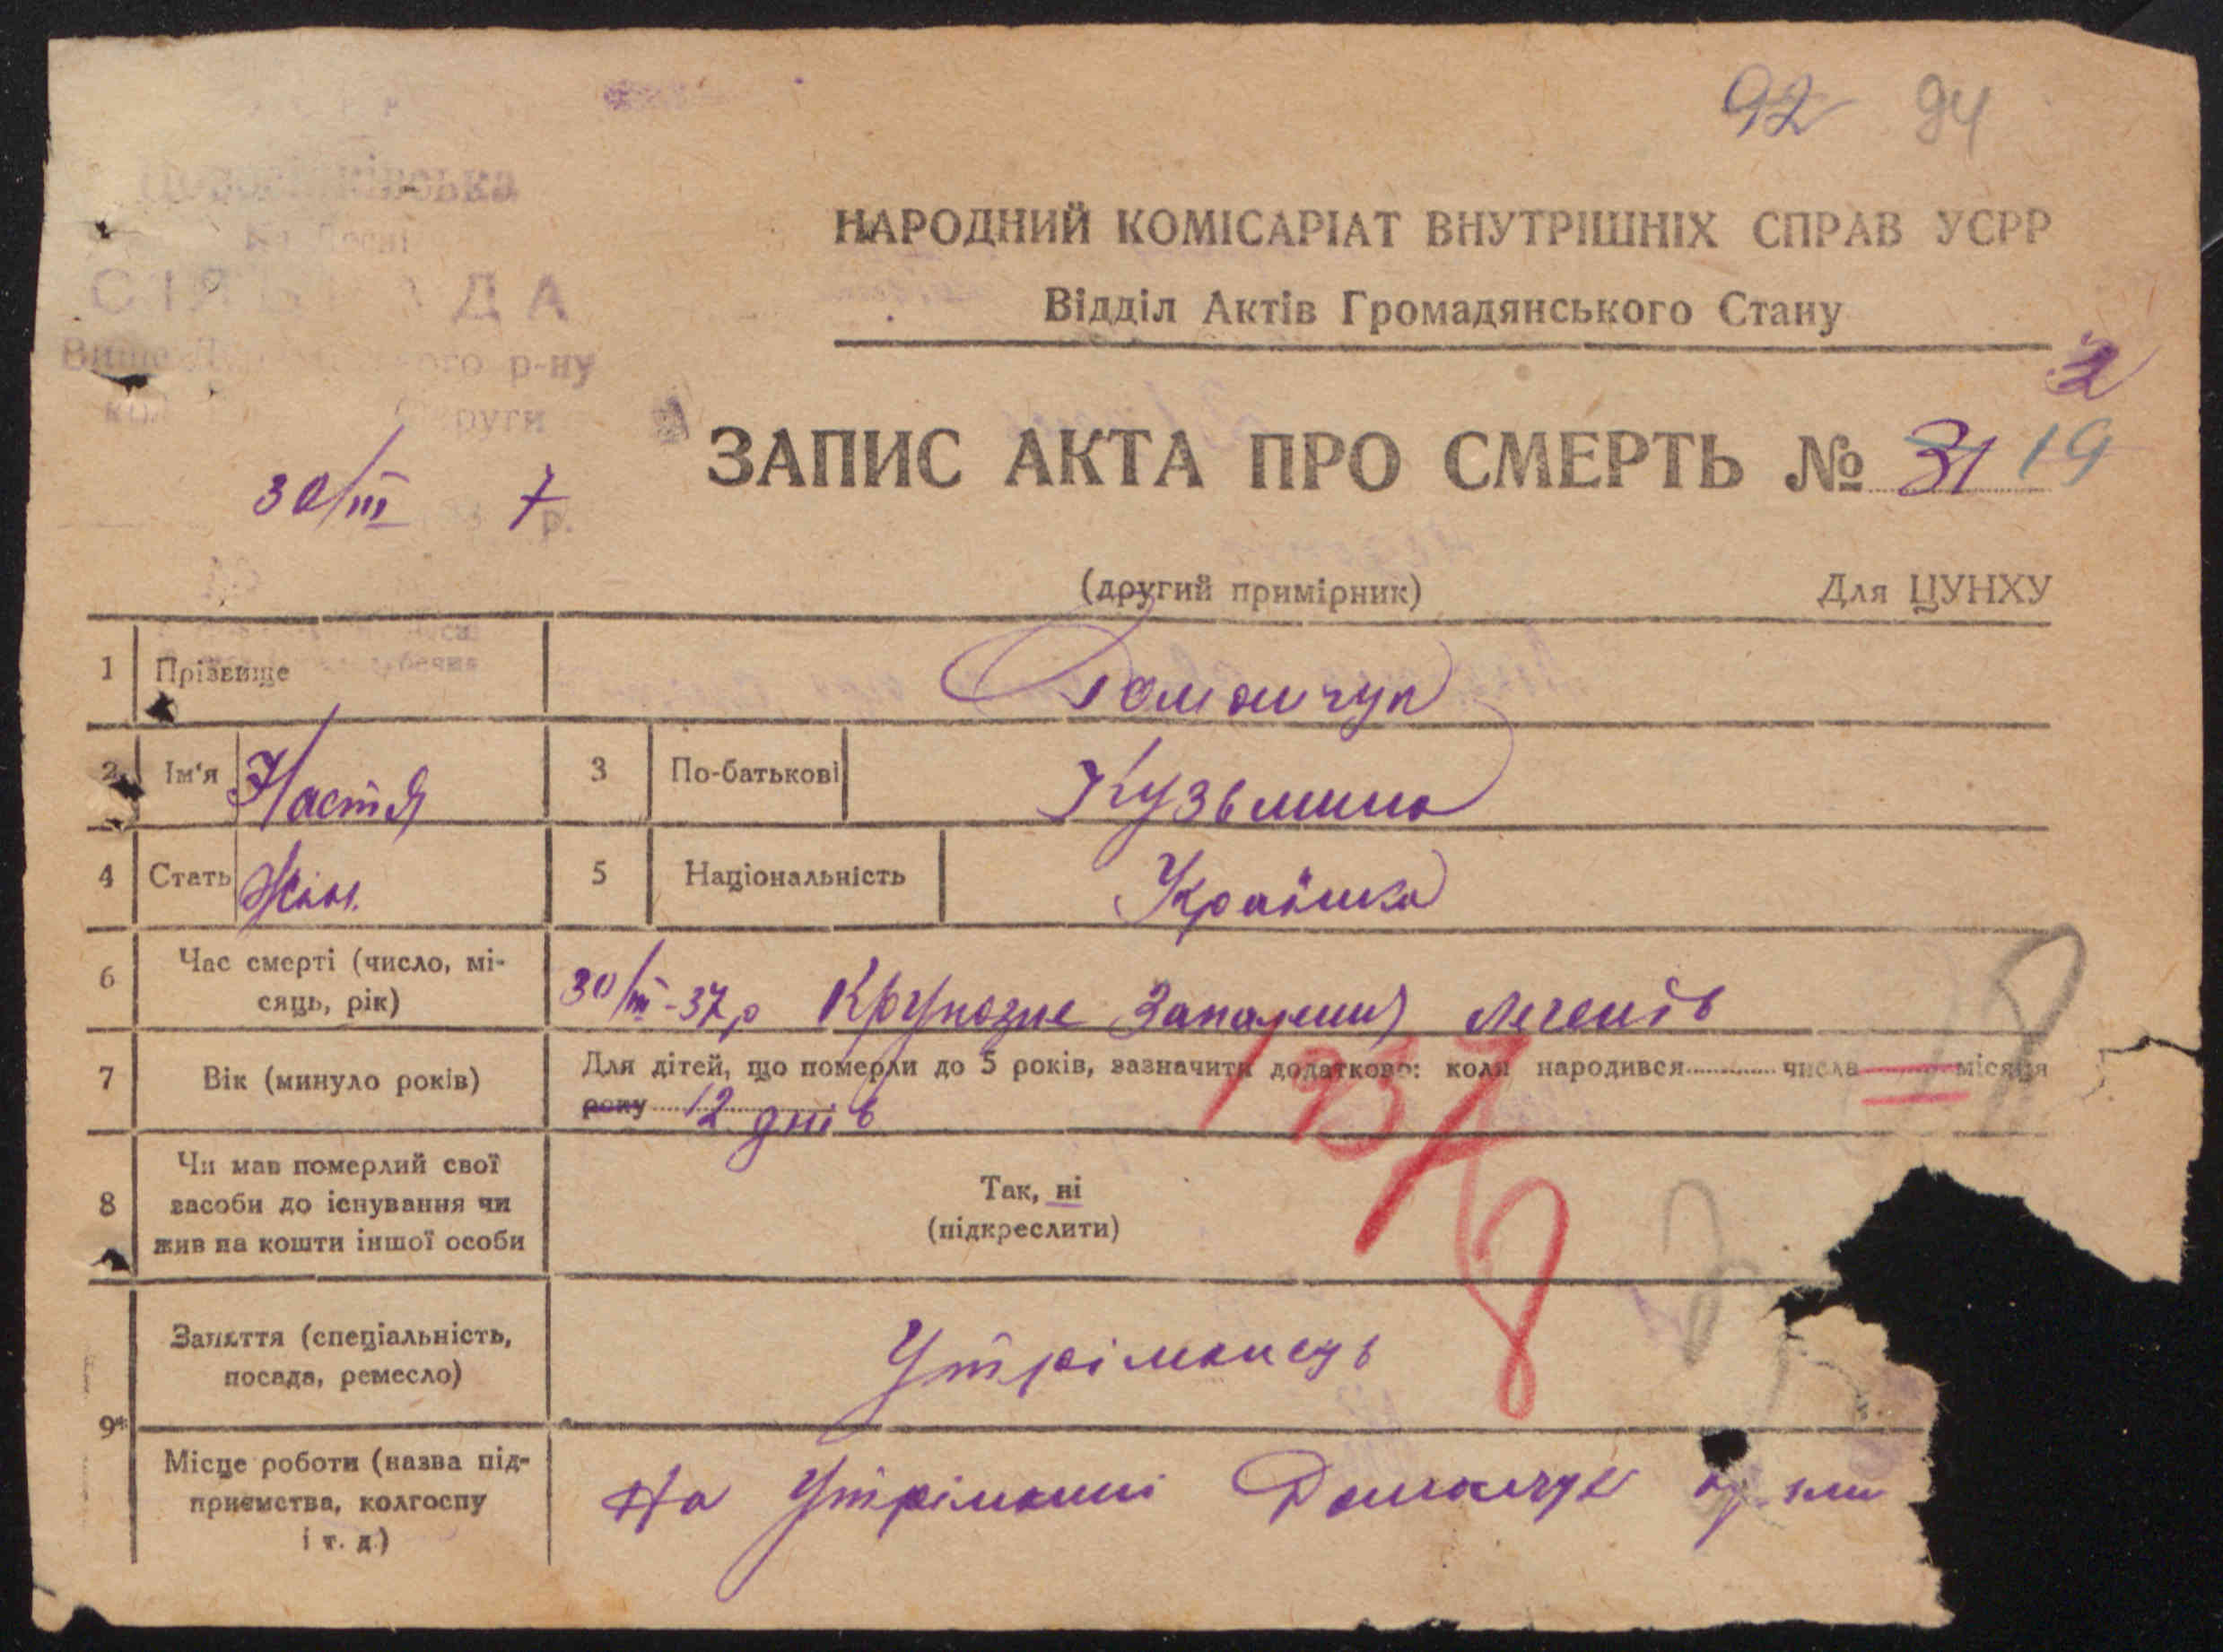 92 94
НАРОДНИЙ КОМІСАРІАТ ВНУТРІШНІХ СПРАВ УСРР
Відділ Актів Громадянського Стану
СІЛЬРАДА
р-ну
Округи
30/III 7 р.
2
ЗАПИС АКТА ПРО СМЕРТЬ № 31 19
(другий примірник) Для ЦУНХУ
1 Прізвище Доманчук
2 Ім'я Настя 3 По-батькові Кузьмина
4 Стать Жін. 5 Національність Українка
6 Час смерті (число, мі-
сяць, рік) 30/III-37 р Крупозне Запаления легенів
7 Вік (минуло років) Для дітей, що померли до 5 років, зазначити додатково: коли народився числа місяця
року 12 днів
1937
8 Чи мав померлий свої
засоби до існування чи
жив на кошти іншої особи
Так, ні
(підкреслити)
9* Заняття (спеціальність,
посада, ремесло) Утріманець
Місце роботи (назва під-
приємства, колгоспу
і т. д.)
На Утріманні Доманчук